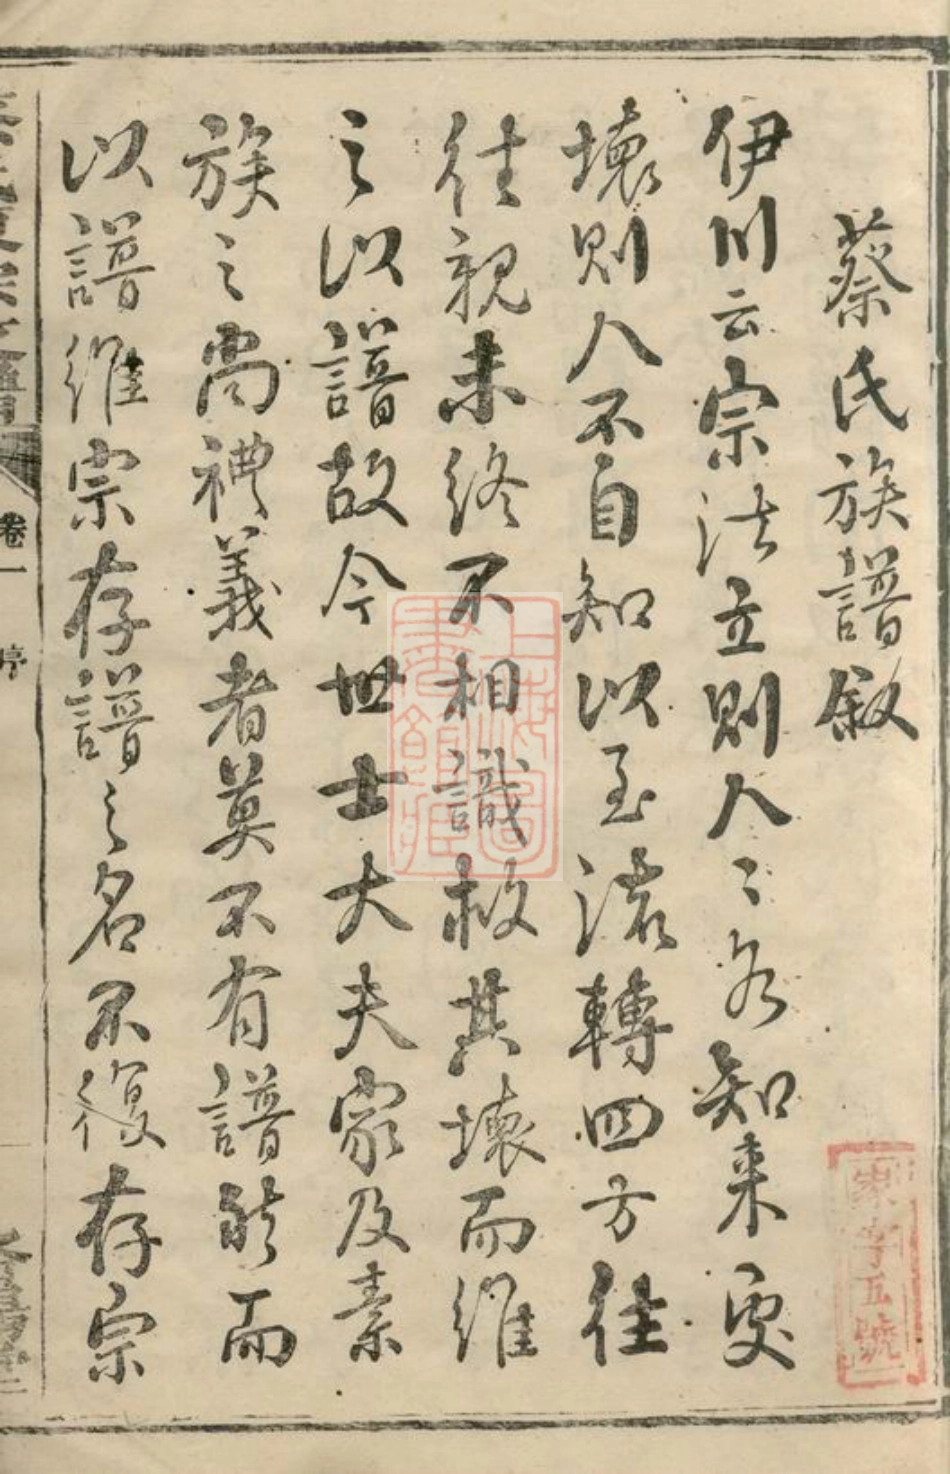 蔡氏族譜敘
伊川云宗法立則人〻各知來處
壞則人不自知以至流轉四方往
往親未終不相識救其壞而維
之以譜故今世士大夫家及素
族之尚禮義者莫不有譜然而
以譜維宗存譜之名不復存宗
卷一
序
家字五號
上海圖書館藏